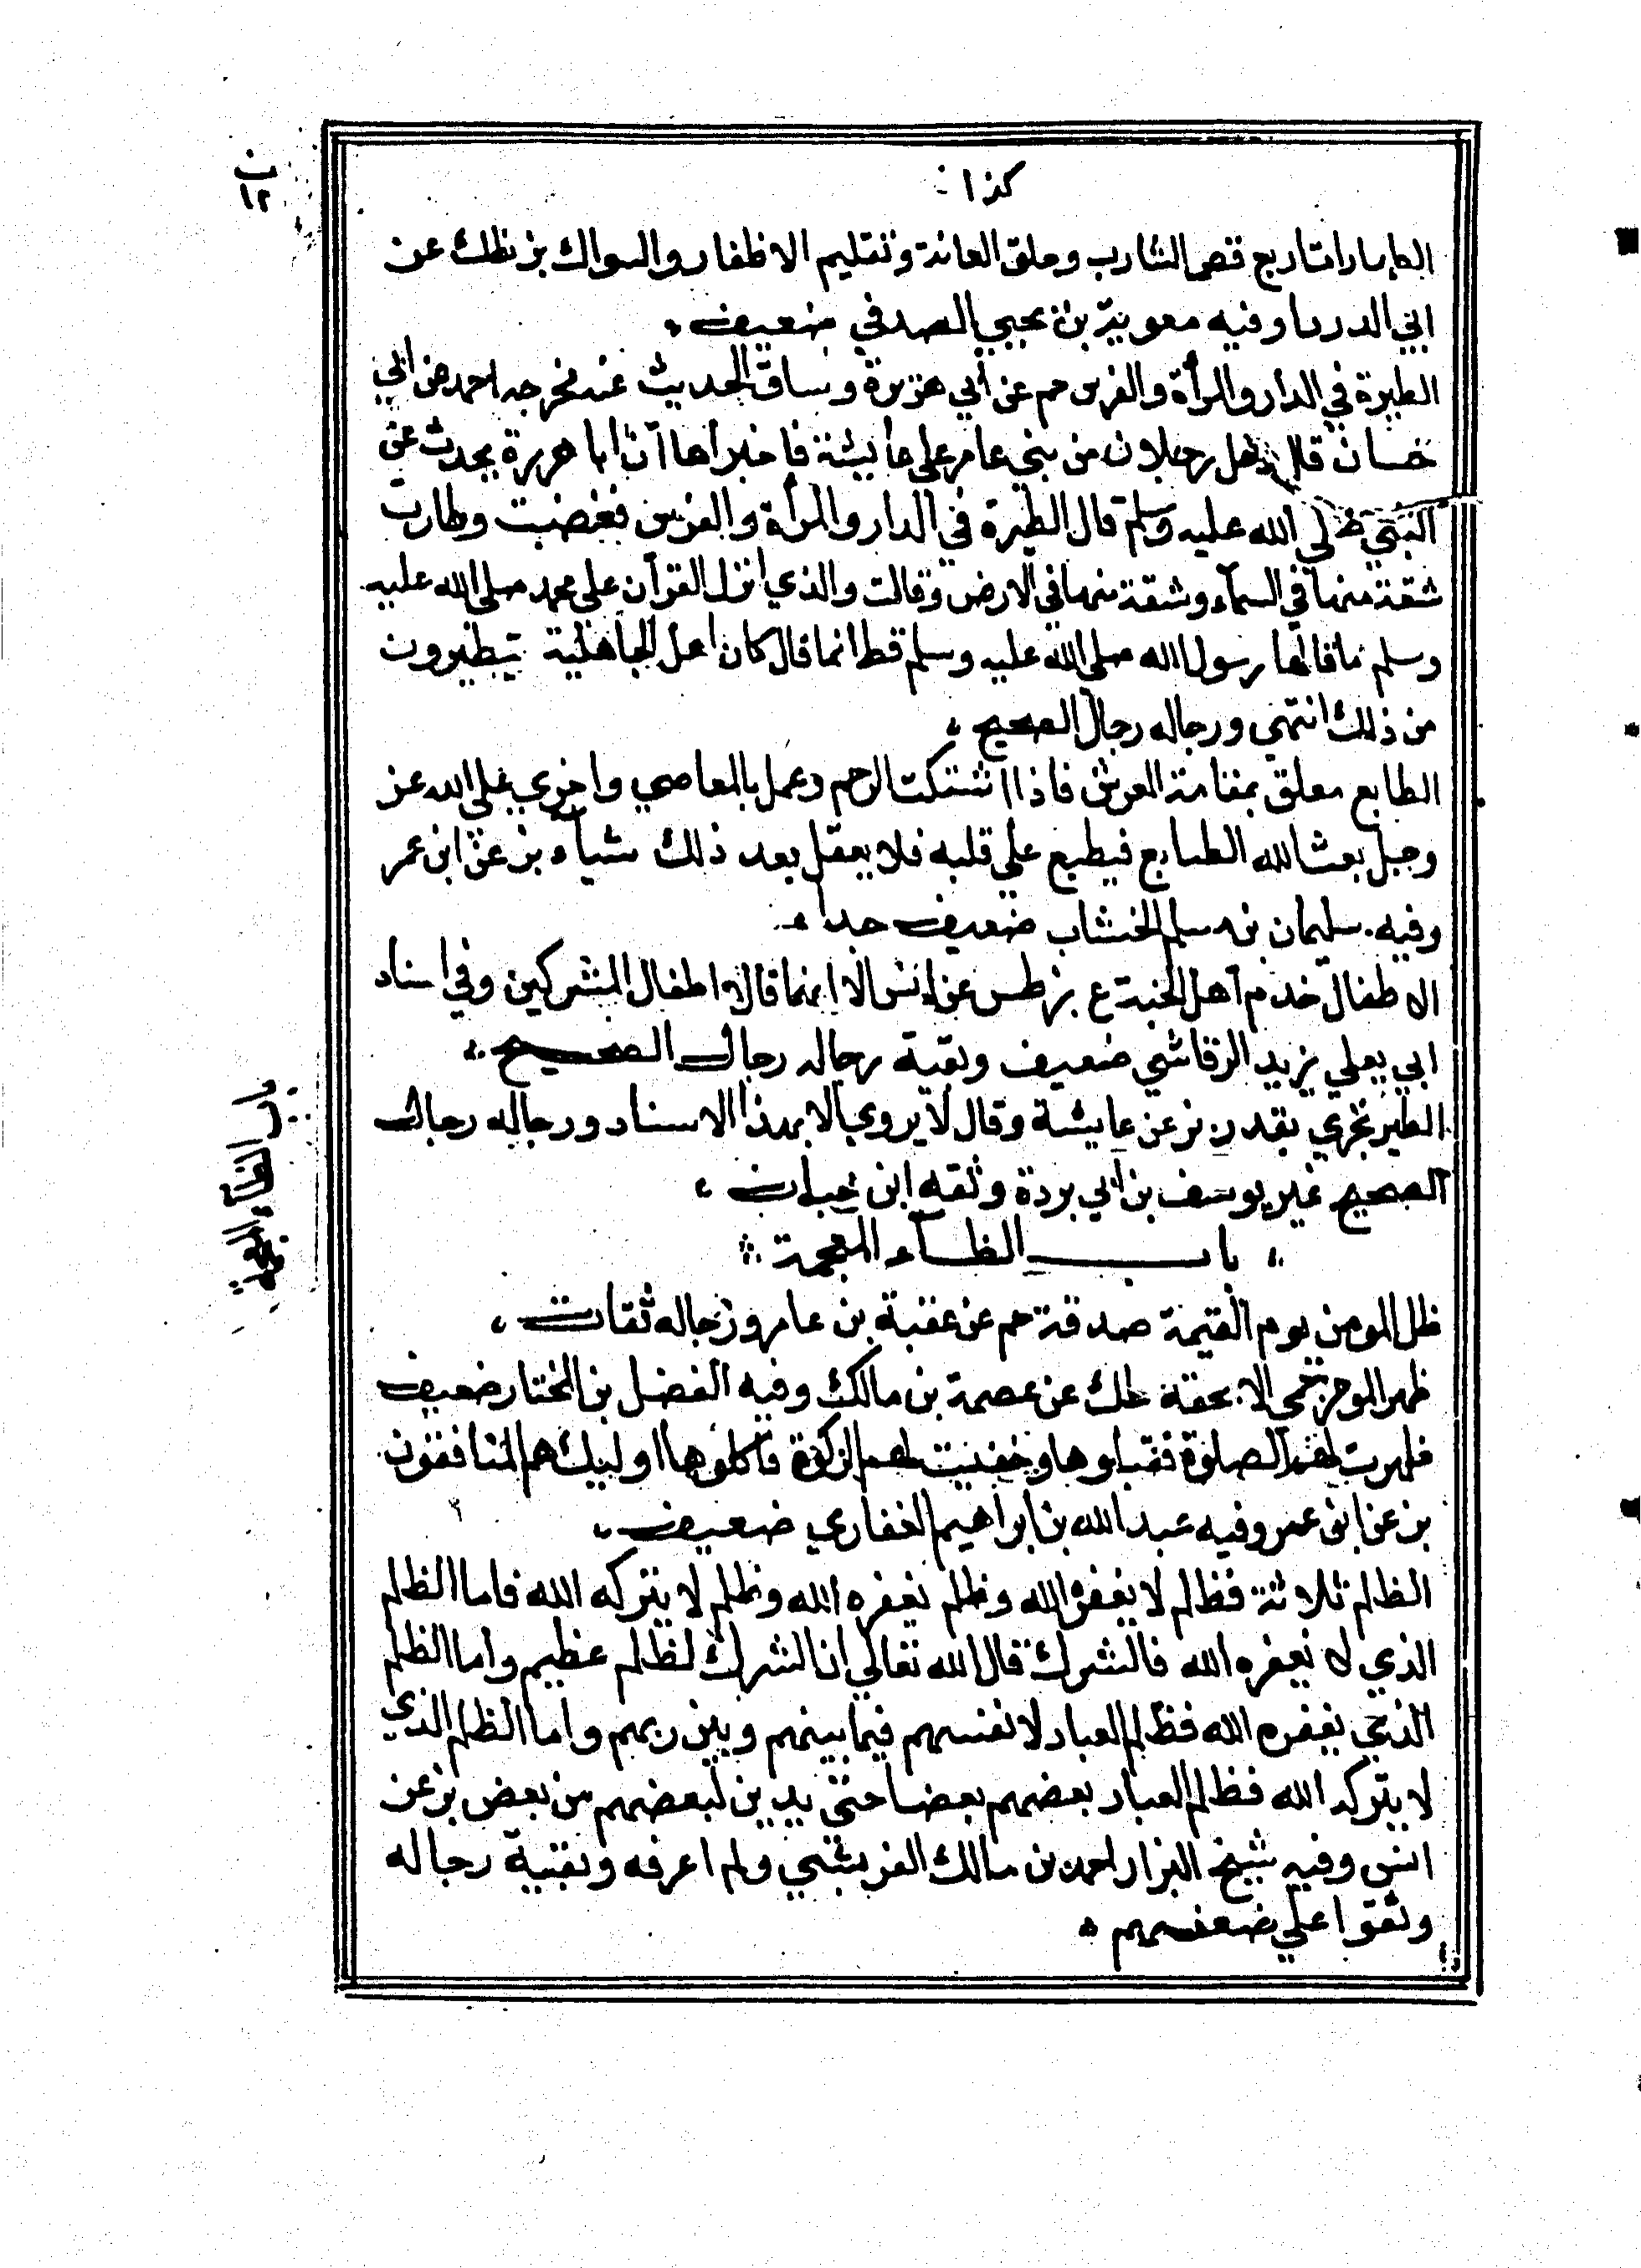 كذا
الطهارات اربع قص الشارب وحلق العانة وتقليم الاظفار والسواك بز طك عن
ابي الدرداء وفيه معوية بن يحيي الصدفي ضعيف
الطيرة في الدار والمرأة والفرس حم عن أبي هريرة وساق الحديث عند مخرجه احمد عن ابي
حسان قال دخل رجلان من بني عامر علي عايشة فاخبراها أن ابا هريرة يحدث عن
النبي صلي الله عليه وسلم قال الطيرة في الدار والمرأة والفرس فغضبت وطارت
شقة منها في السماء وشقة منها في الارض وقالت والذي انزل القرآن علي محمد صلي الله عليه
وسلم ما قالها رسول الله صلي الله عليه وسلم قط انما قال كان اهل الجاهلية يتطيرون
من ذلك انتهي ورجاله رجال الصحيح
الطابع معلق بقامة العرش فاذا اشتكت الرحم وعمل بالمعاصي واجري علي الله عز
وجل بعث الله الطابع فيطبع علي قلبه فلا يعقل بعد ذلك شياء بز عن ابن عمر
وفيه سليمان بن مسلم الخشاب ضعيف جدا
الاطفال خدم أهل الجنة ع بز طس عن انس الا انهما قالا اطفال المشركين وفي اسناد
ابي يعلي يزيد الرقاشي ضعيف وبقية رجاله رجال الصحيح
الطير تجري بقدر بز عن عايشة وقال لا يروي الا بهذا الاسناد ورجاله رجال
الصحيح غير يوسف بن ابي بردة وثقه ابن حبان
باب الظاء المعجمة
باب الظاء المعجمة
ظل المومن يوم القيمة صدقة حم عن عقبة بن عامر ورجاله ثقات
ظهر المومن حمي الا بحقه طك عن عصمة بن مالك وفيه الفضل بن المختار ضعيف
ظهرت لهم الصلوة فقبلوها وخفيت لهم الزكوة فأكلوها اوليك هم المنافقون
بز عن ابن عمر وفيه عبد الله بن ابراهيم الغفاري ضعيف
الظلم ثلاثة فظلم لا يغفره الله وظلم يغفره الله وظلم لا يتركه الله فاما الظلم
الذي لا يغفره الله فالشرك قال الله تعالي ان الشرك لظلم عظيم واما الظلم
الذي يغفره الله فظلم العباد لانفسهم فيما بينهم وبين ربهم واما الظلم الذي
لا يتركه الله فظلم العباد بعضهم بعضا حتي يدين لبعضهم من بعض بز عن
انس وفيه شيخ البزار احمد بن مالك القريشي ولم اعرفه وبقية رجاله
وثقوا علي ضعفهم